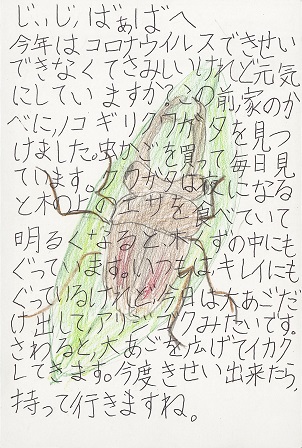 じぃじ,ばぁばへ
今年はコロナウイルスできせい
できなくてさみしいけれど元気
にしていますか?この前,家のか
べに,ノコギリクワガタを見つ
けました。虫かごを買って毎日見
ています。クワガタは夜になる
と木の上のエサを食べていて
明るくなると,木くずの中にも
ぐっています。いつもは,キレイにも
ぐっているけれど,今日は,大あごだ
け出して,アリジゴクみたいです。
さわると,大あごを広げてイカク
してきます。今度きせい出来たら,
持って行きますね。